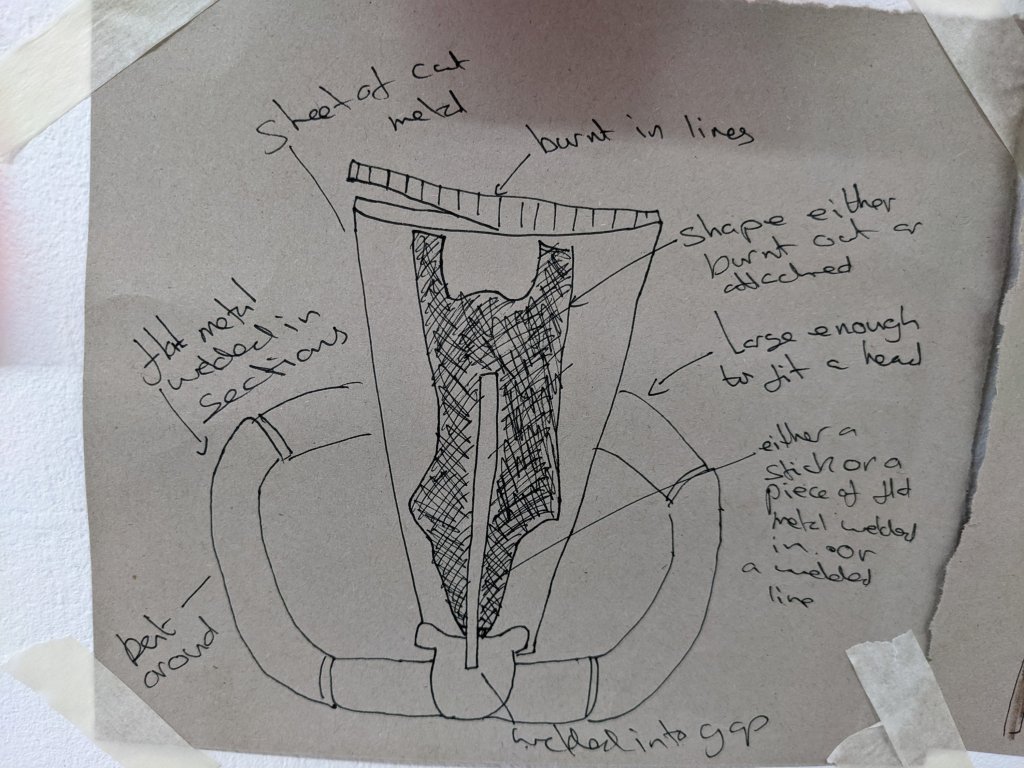 Sheet of cut
metal
burnt in lines
shape either
burnt out or
attached
flat metal
welded in
sections
Large enough
to fit a head
either a
stick or a
piece of flat
metal welded
in. or
a welded
line
bent
around
welded into gap